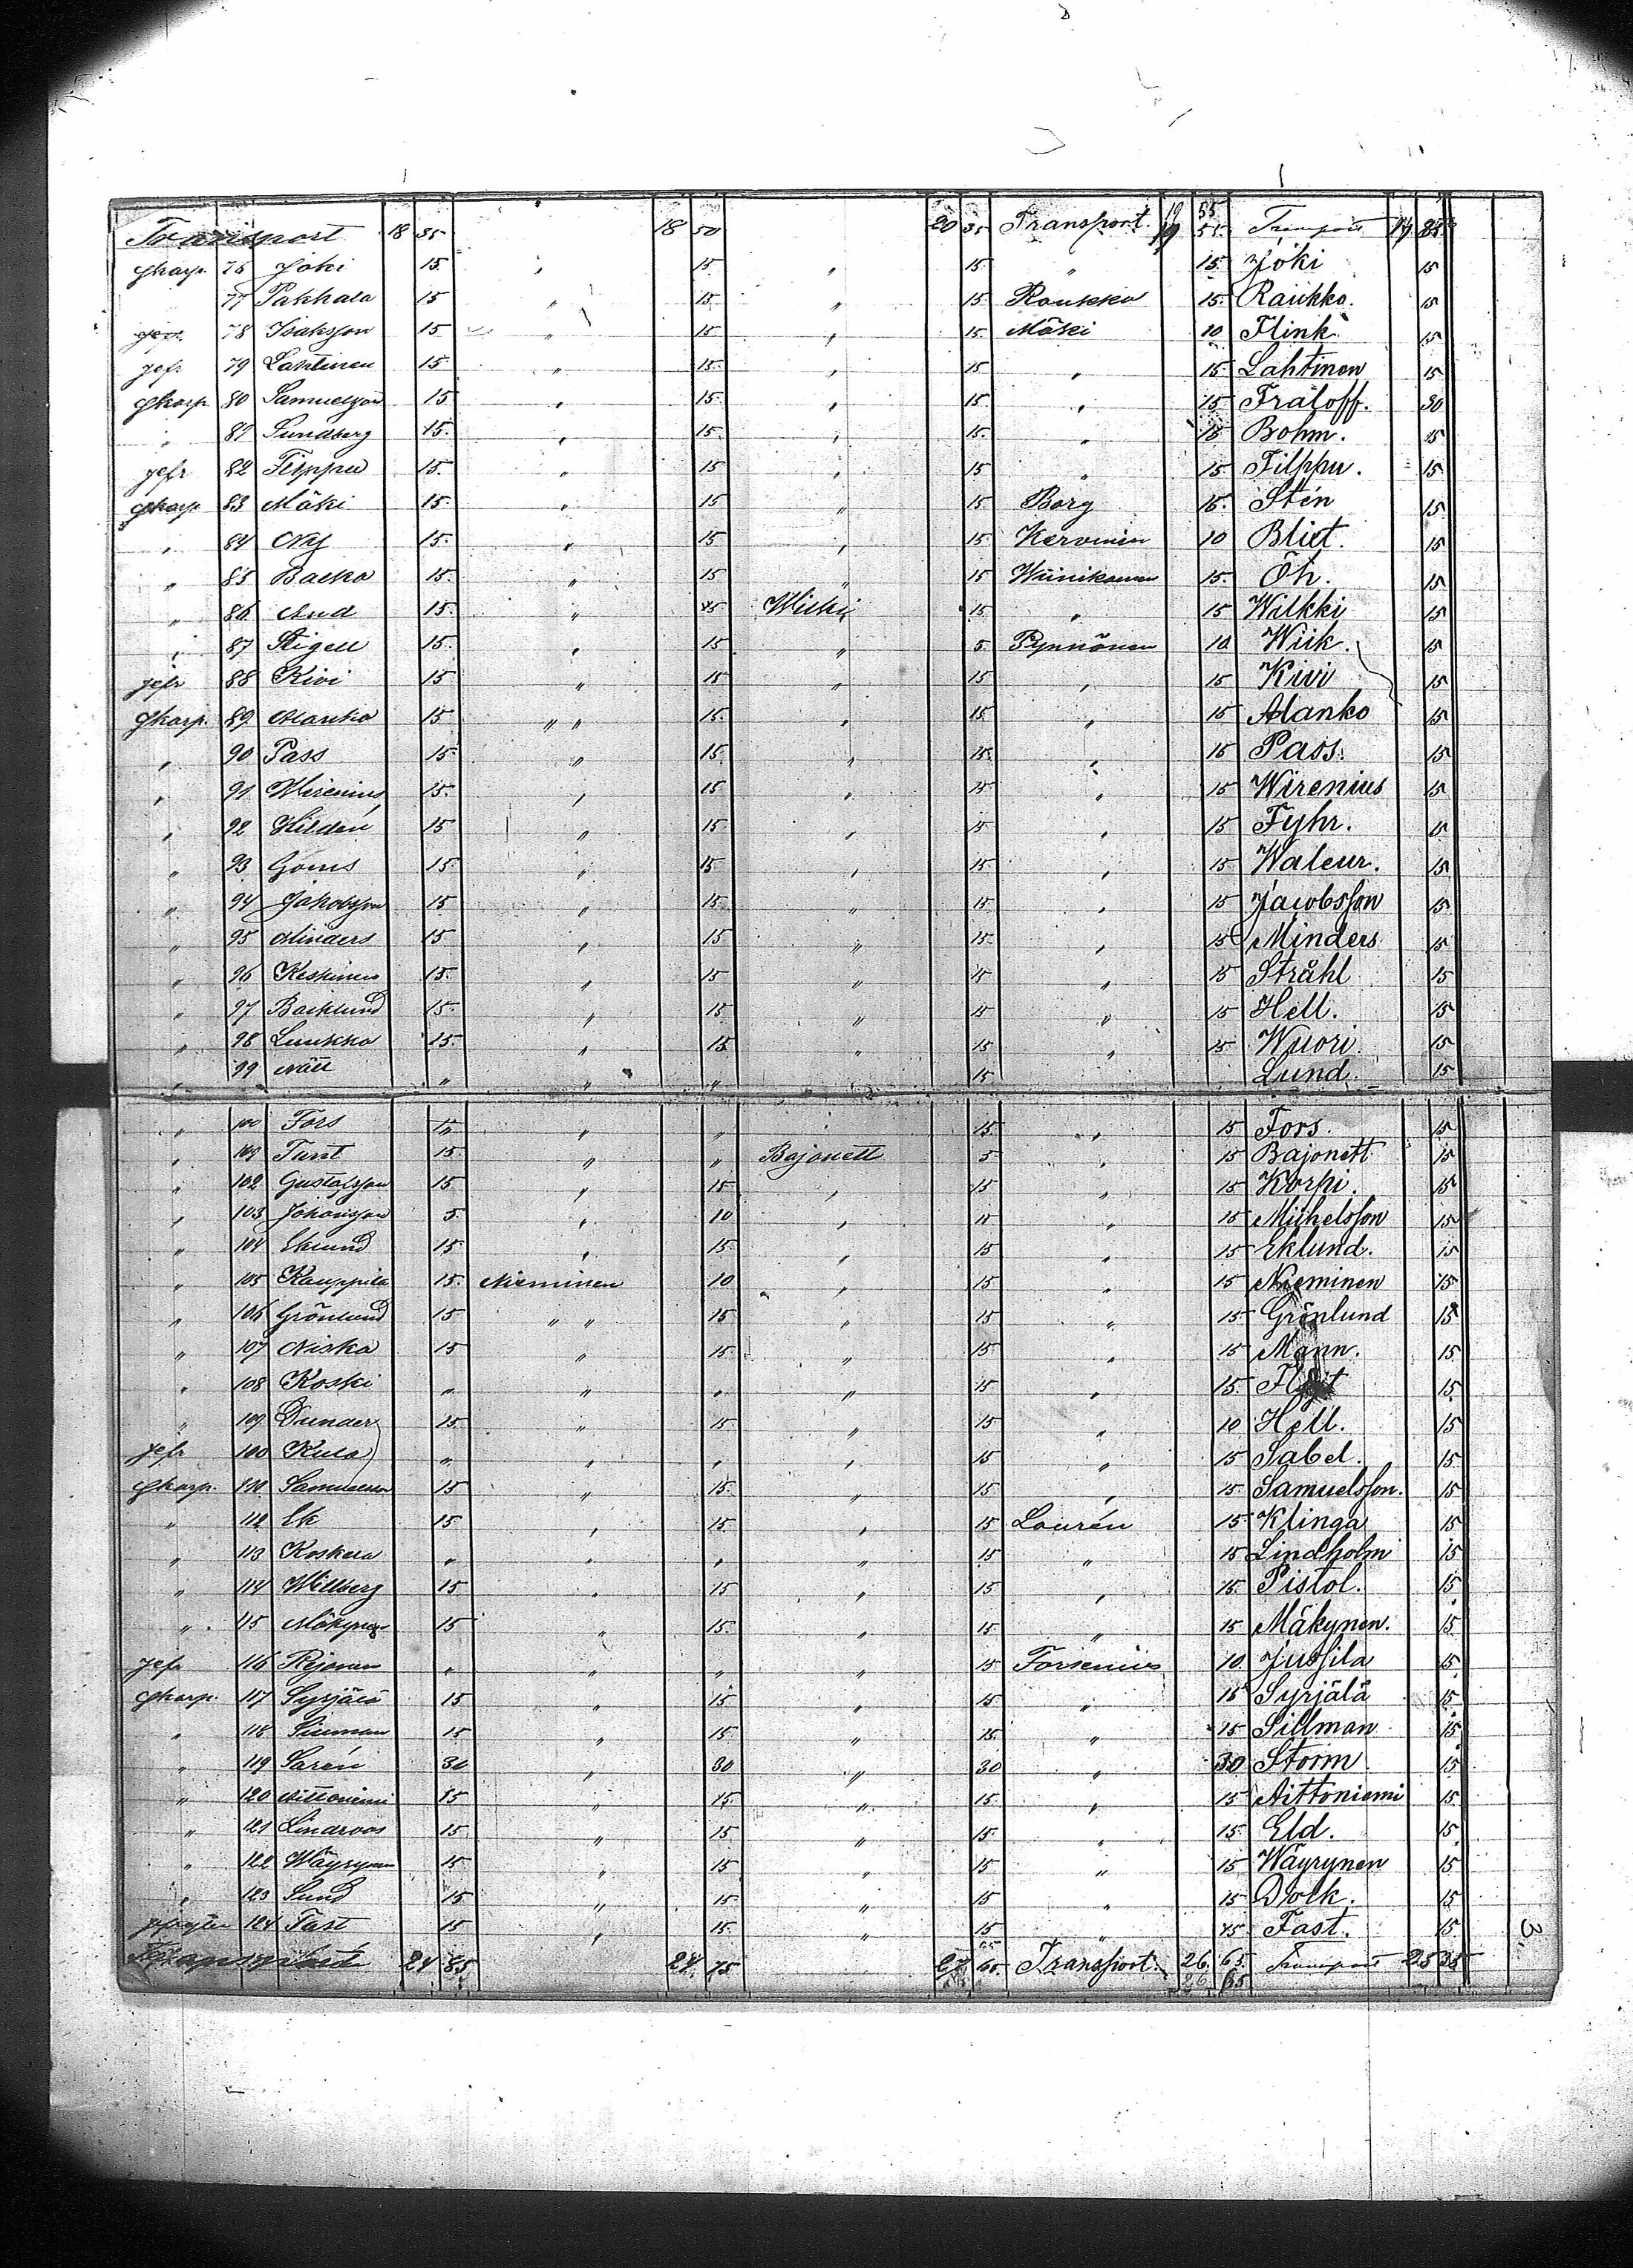 Transport 18 35 18 50 20 35 Transport 19 55 Transport 19 85
skarp. 76 Joki 15 " 15 " 15 " 15 Joki 15
77 Pakkala 15 " 15 " 15 Raukko 15 Raukko. 15
gefr 78 Isaksson 15 " 15 " 15 Mäki 10 Flink 15
gefr 79 Lahtinen 15 " 15 " 15 " 15 Lahtinen 15
skarp 80 Samuelsson 15 " 15 " 15 " 15 Fraloff. 30
" 81 Sundberg 15 " 15 " 15 " 15 Bohm. 15
gefr 82 Filppu 15 " 15 " 15 " 15 Filppu. 15
skarp 83 Mäki 15 " 15 " 15 Borg 15 Stén 15
" 84 Ny 15 " 15 " 15 Kervinen 10 Blixt. 15
" 85 Backa 15 " 15 " 15 Wäinikainen 15 Öh. 15
" 86 And 15 " 15 Wilkki 15 " 15 Wilkki 15
" 87 Stigell 15 " 15 " 5 Pynnönen 10 Wiik. 15
gefr 88 Kivi 15 " 15 " 15 " 15 Kivi 15
skarp. 89 Alanko 15 " " 15 " 15 " 15 Alanko 15
" 90 Pass 15 " 15 " 15 " 15 Pass. 15
" 91 Wirenius 15 " 15 " 15 " 15 Wirenius 15
" 92 Hildén 15 " 15 " 15 " 15 Fyhr. 15
" 93 15 " 15 " 15 " 15 Waleur. 15
" 94 Jakobsson 15 " 15 " 15 " 15 Jacobsson 15
" 95 Minders 15 " 15 " 15 " 15 Minders 15
" 96 Keskinen 15 " 15 " 15 " 15 Stråhl 15
" 97 Backlund 15 " 15 " 15 " 15 Hell. 15
" 98 Luukko 15 " 15 " 15 " 15 Wuori. 15
" 99 Nätt " " " 15 Lund. 15
" 100 Fors " " 15 " 15 Fors. 15
" 101 Turst 15 " " Bajonett 5 " 15 Bajonett 15
" 102 Gustafsson 15 " 15 " 15 " 15 Korpi. 15
" 103 Johansson 5 " 10 " 15 " 15 Michelsson 15
" 104 Eklund 15 " 15 " 15 " 15 Eklund. 15
" 105 Kauppila 15 Nieminen 10 " 15 " 15 Nieminen 15
" 106 Grönlund 15 " " 15 " 15 " 15 Grönlund 15
" 107 Niska 15 " 15 " 15 " 15 Mann. 15
" 108 Koski " " " " 15 " 15 15
" 109 Dunder 15 " 15 " 15 " 10 Hell. 15
gefr 100 Kula " " " 15 " 15 Sabel. 15
skarp. 110 Samuelsson 15 " 15 " 15 " 15 Samuelsson. 15
" 112 Ek 15 " 15 " 15 Laurén 15 Klinga 15
" 113 Koskela " " " " 15 " 15 Lindholm 15
" 114 Willberg 15 " 15 " 15 " 15 Pistol. 15
" 115 Mäkynen 15 " 15 " 15 " 15 Mäkynen. 15
gefr 116 Rejonen " " " " 15 Forsenius 10 Jussila 15
skarp. 117 Syrjälä 15 " 15 " 15 " 15 Syrjälä 15
" 118 Sillman 15 " 15 " 15 " 15 Sillman 15
" 119 Sarén 30 " 30 " 30 " 30 Storm 15
" 120 Aittoniemi 15 " 15 " 15 " 15 Aittoniemi 15
" 121 Lindroos 15 " 15 " 15 " 15 Eld. 15
" 122 Wäyrynen 15 " 15 " 15 " 15 Wäyrynen 15
" 123 Sund 15 " 15 " 15 " 15 Dolk. 15
124 Fast 15 " 15 " 15 " 15 Fast. 15 3
Transport 24 85 24 75 27 Transport. 26. 65 Transport 25 35
26 65